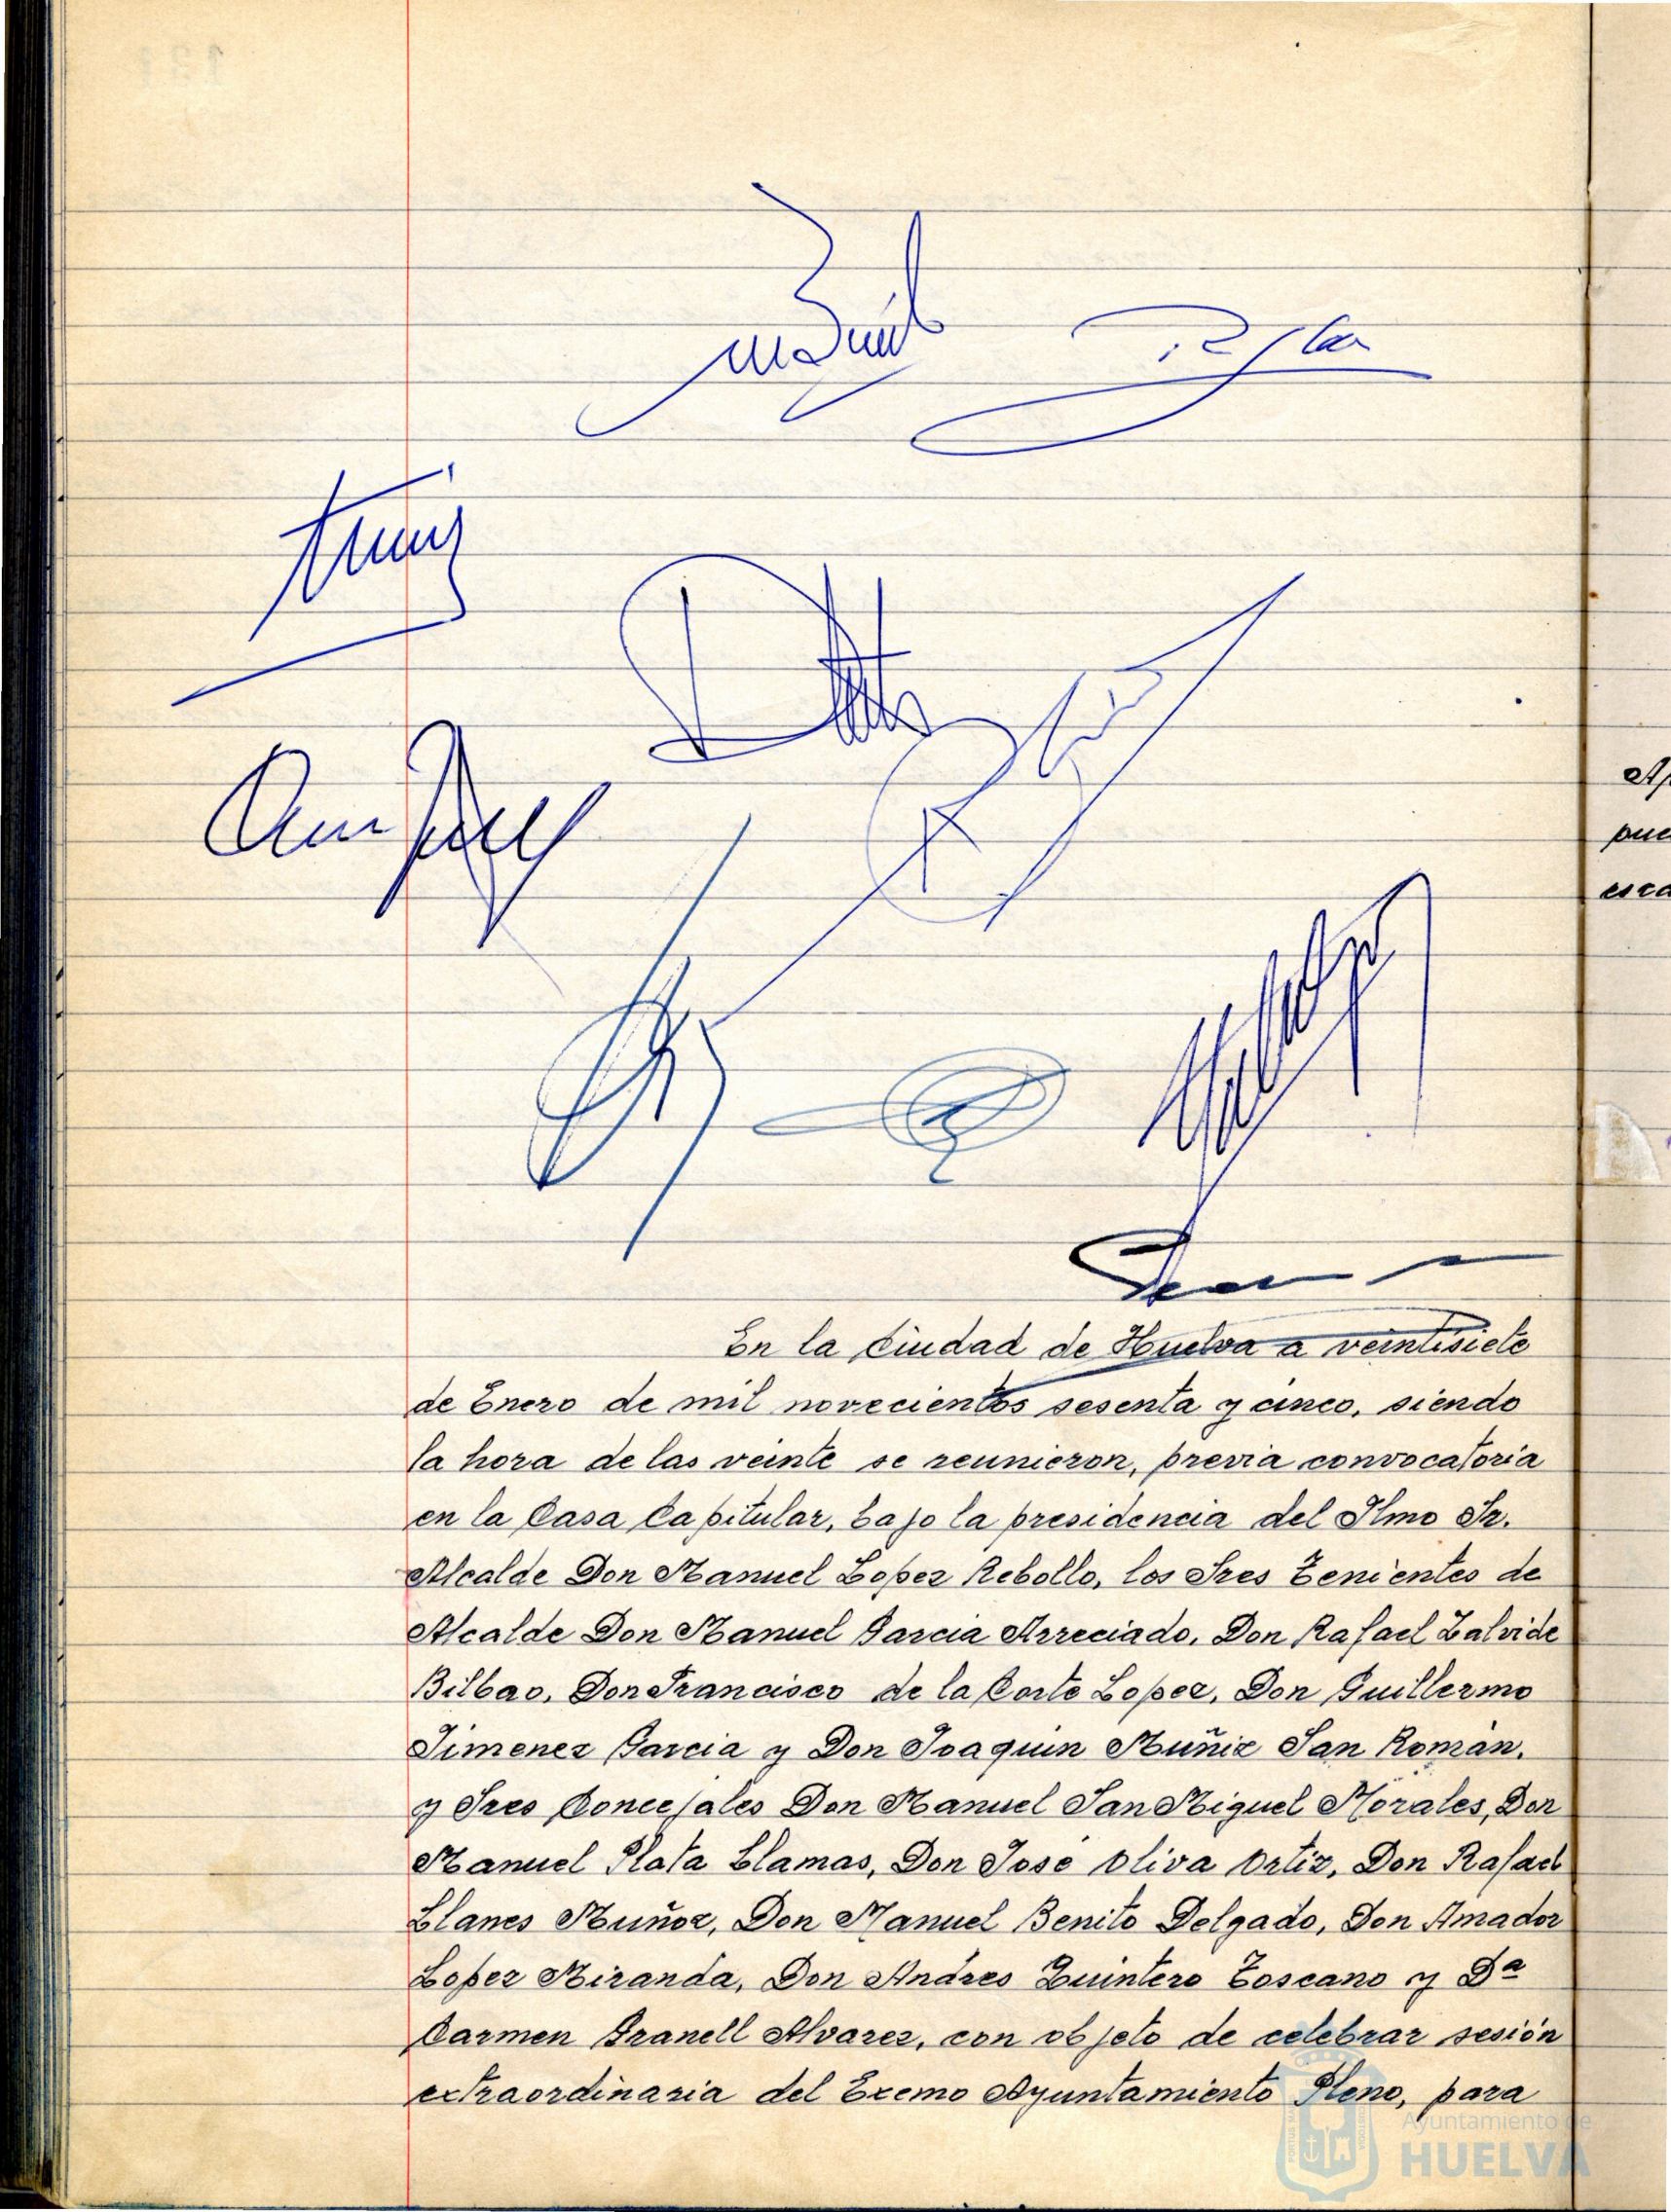 En la Ciudad de Huelva a veintisiete
de Enero de mil novecientos sesenta y cinco, siendo
la hora de las veinte se reunieron, previa convocatoria
en la Casa Capitular, bajo la presidencia del Ilmo Sr.
Alcalde Don Manuel Lopez Rebollo, los Sres Tenientes de
Alcalde Don Manuel Garcia Arreciado, Don Rafael Zalvide
Bilbao, Don Francisco de la Corte Lopez, Don Guillermo
Jimenez Garcia y Don Joaquin Muñiz San Román,
y Sres Concejales Don Manuel San Miguel Morales, Don
Manuel Plata Llamas, Don José Oliva Ortiz, Don Rafael
Llanes Muñoz, Don Manuel Benito Delgado, Don Amador
Lopez Miranda, Don Andrés Quintero Toscano y Dª
Carmen Granell Alvarez, con objeto de celebrar sesión
extraordinaria del Excmo Ayuntamiento Pleno, para
Ayuntamiento de
HUELVA